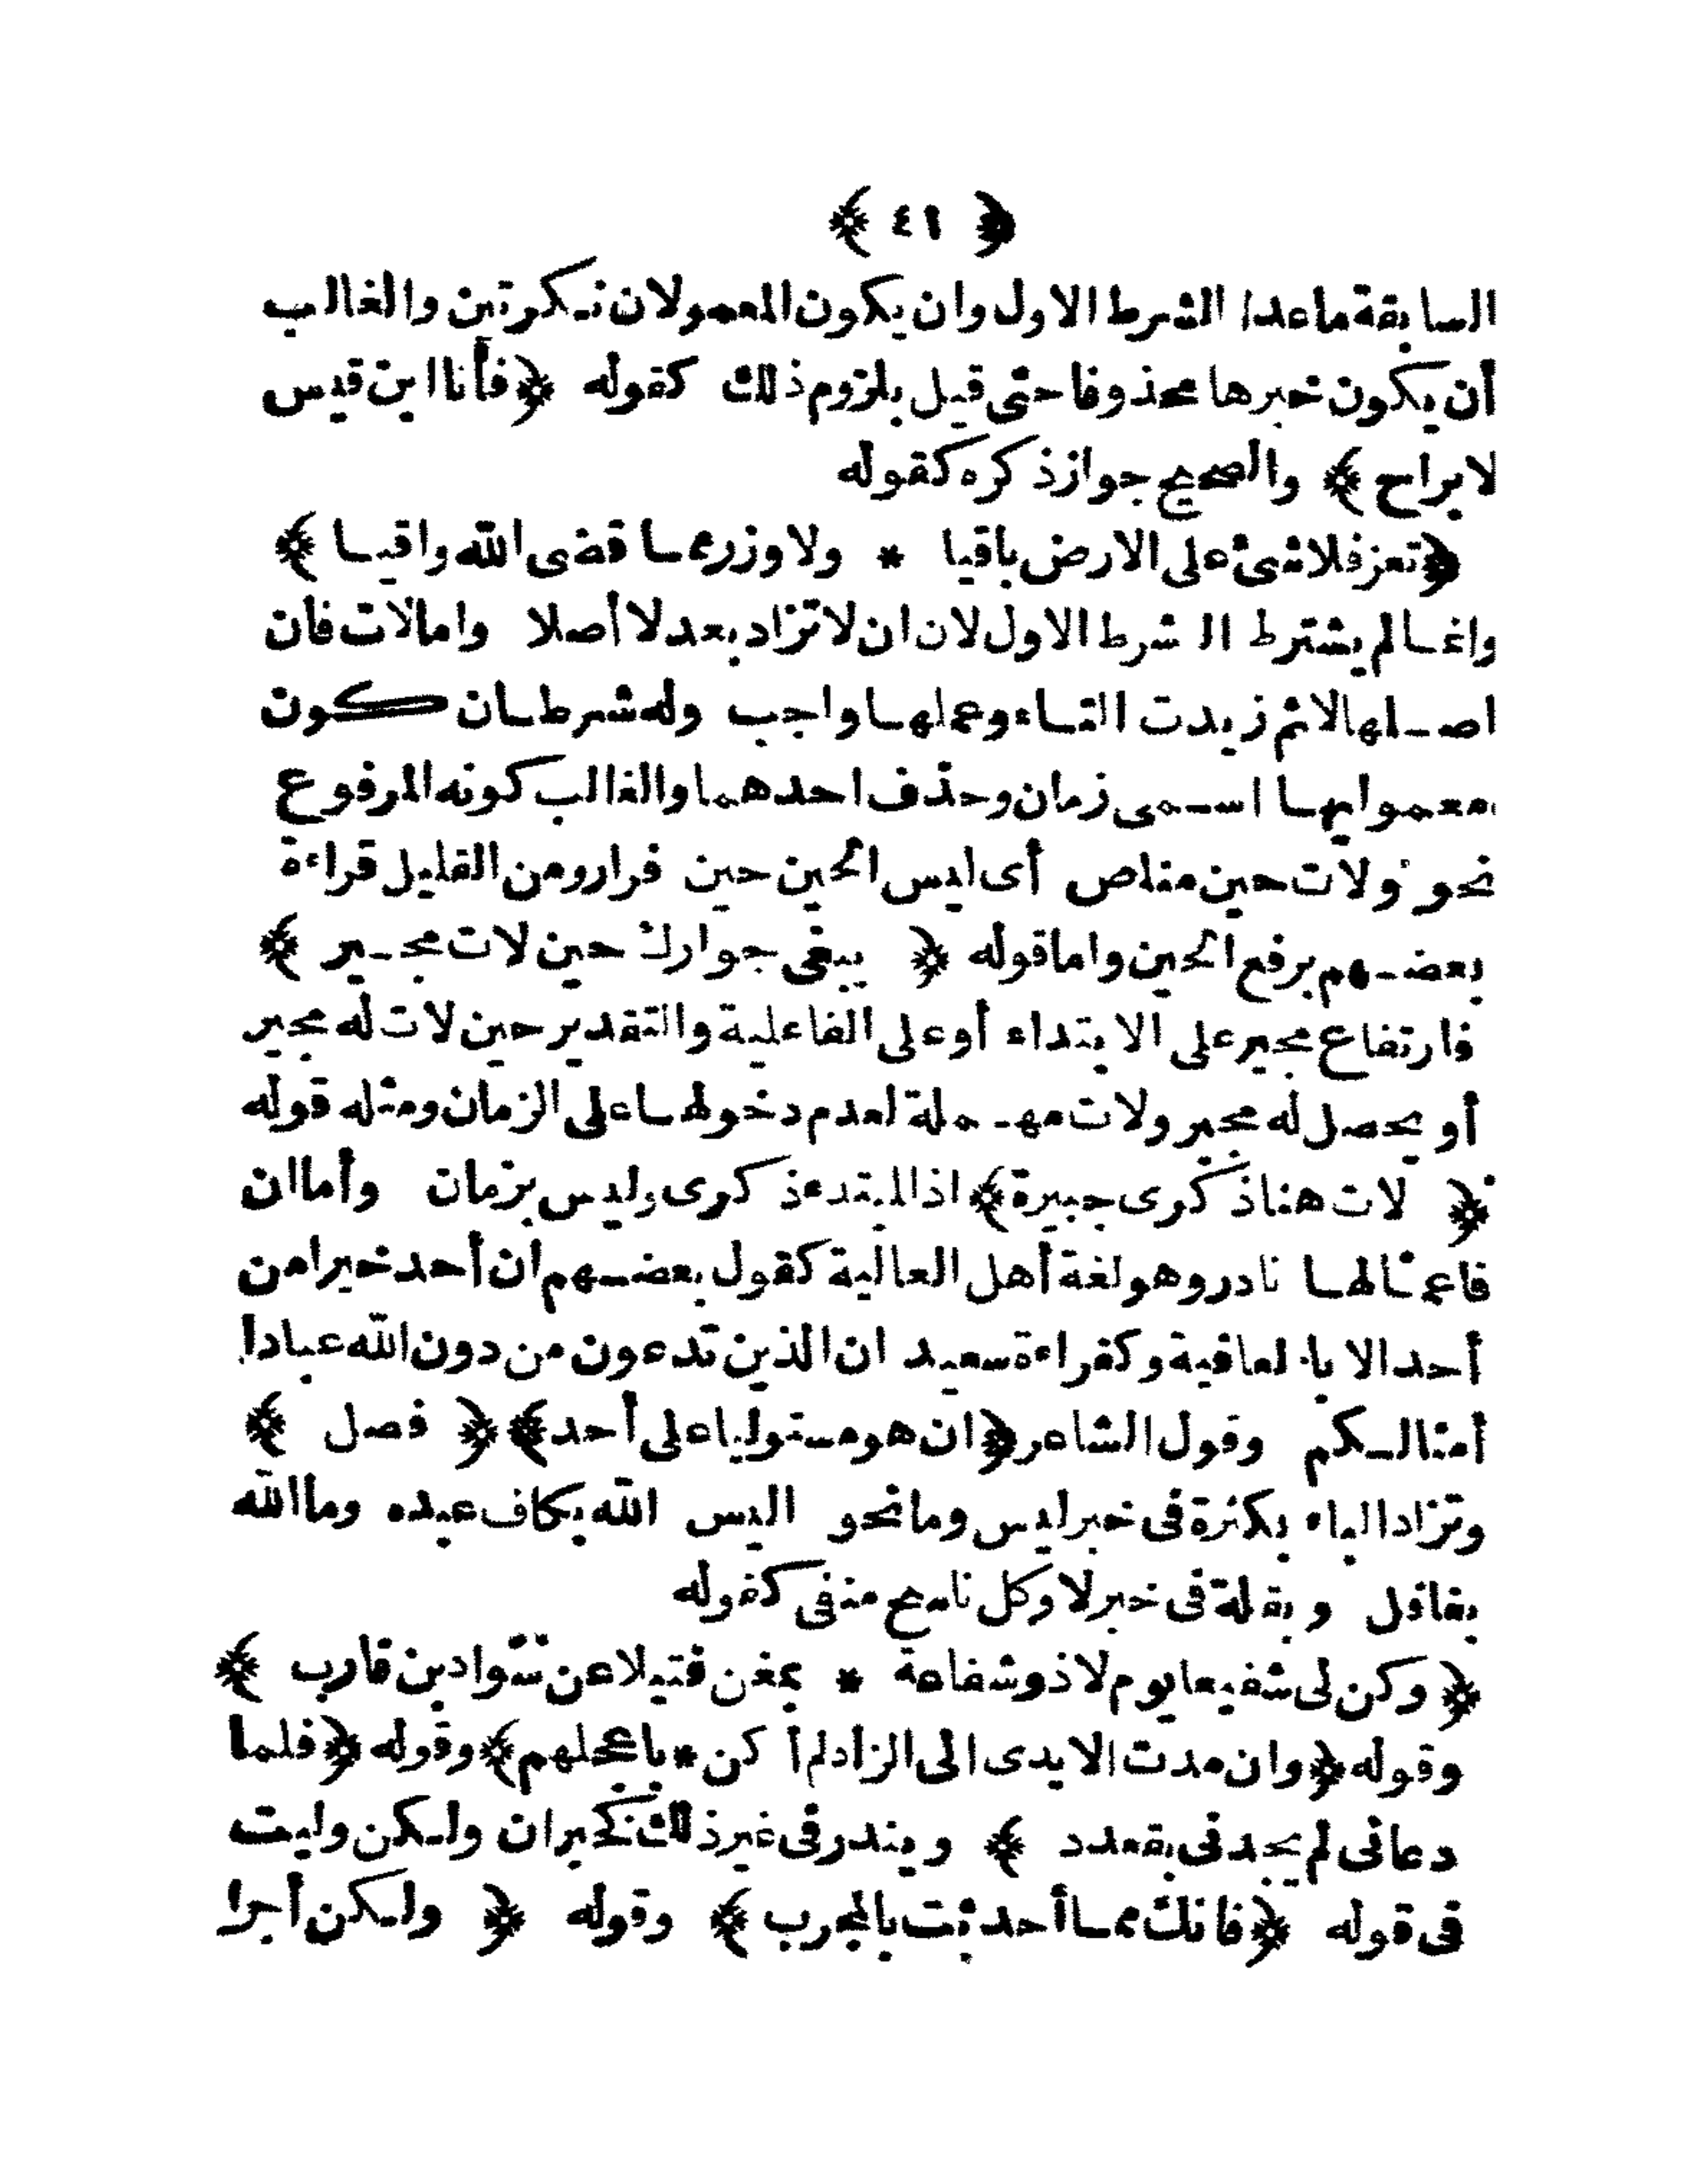 ﴿ ٤١ ﴾
السابقة ماعدا الشرط الاول وان يكون المعمولان نكرتين والغالب
أن يكون خبرها محذوفا حتى قيل بلزوم ذلك كقوله ﴿ فأنا ابن قيس
لابراح ﴾ والصحيح جواز ذكره كقوله
﴿ تعز فلا شئ على الارض باقيا * ولا وزر مما قضى الله واقيا ﴾
وانما لم يشترط الشرط الاول لان ان لا تزاد بعد لا أصلا واما لات فان
اصلها لا ثم زيدت التاء وعملها واجب وله شرطان كون
معموليها اسمى زمان وحذف احدهما والغالب كونه المرفوع
نحو ولات حين مناص أى ليس الحين حين فرار ومن القليل قراءة
بعضهم برفع الحين واما قوله ﴿ يبغى جوارك حين لات مجير ﴾
فارتفاع مجير على الابتداء أو على الفاعلية والتقدير حين لات له مجير
أو يحصل له مجير ولات مهملة لعدم دخولها على الزمان ومثله قوله
﴿ لات هنا ذكرى جبيرة ﴾ اذ المبتدء ذكرى وليس بزمان وأما ان
فاعمالها نادر وهو لغة أهل العالية كقول بعضهم ان أحد خيرا من
أحد الا بالعافية وكقراءة سعيد ان الذين تدعون من دون الله عبادا
أمثالكم وقول الشاعر ﴿ ان هو مستوليا على أحد ﴾ ﴿ فصل ﴾
وتزاد الباء بكثرة فى خبر ليس وما نحو اليس الله بكاف عبده وما الله
بغافل وبقلة فى خبر لا وكل ناسخ منفى كقوله
﴿ وكن لى شفيعا يوم لا ذو شفاعة * بمغن فتيلا عن سواد بن قارب ﴾
وقوله ﴿ وان مدت الايدى الى الزاد لم أكن * باعجلهم ﴾ وقوله ﴿ فلما
دعانى لم يجدنى بقعدد ﴾ ويندر فى غير ذلك كخبر ان ولكن وليت
فى قوله ﴿ فانك مما أحدثت بالمجرب ﴾ وقوله ﴿ ولكن أجرا